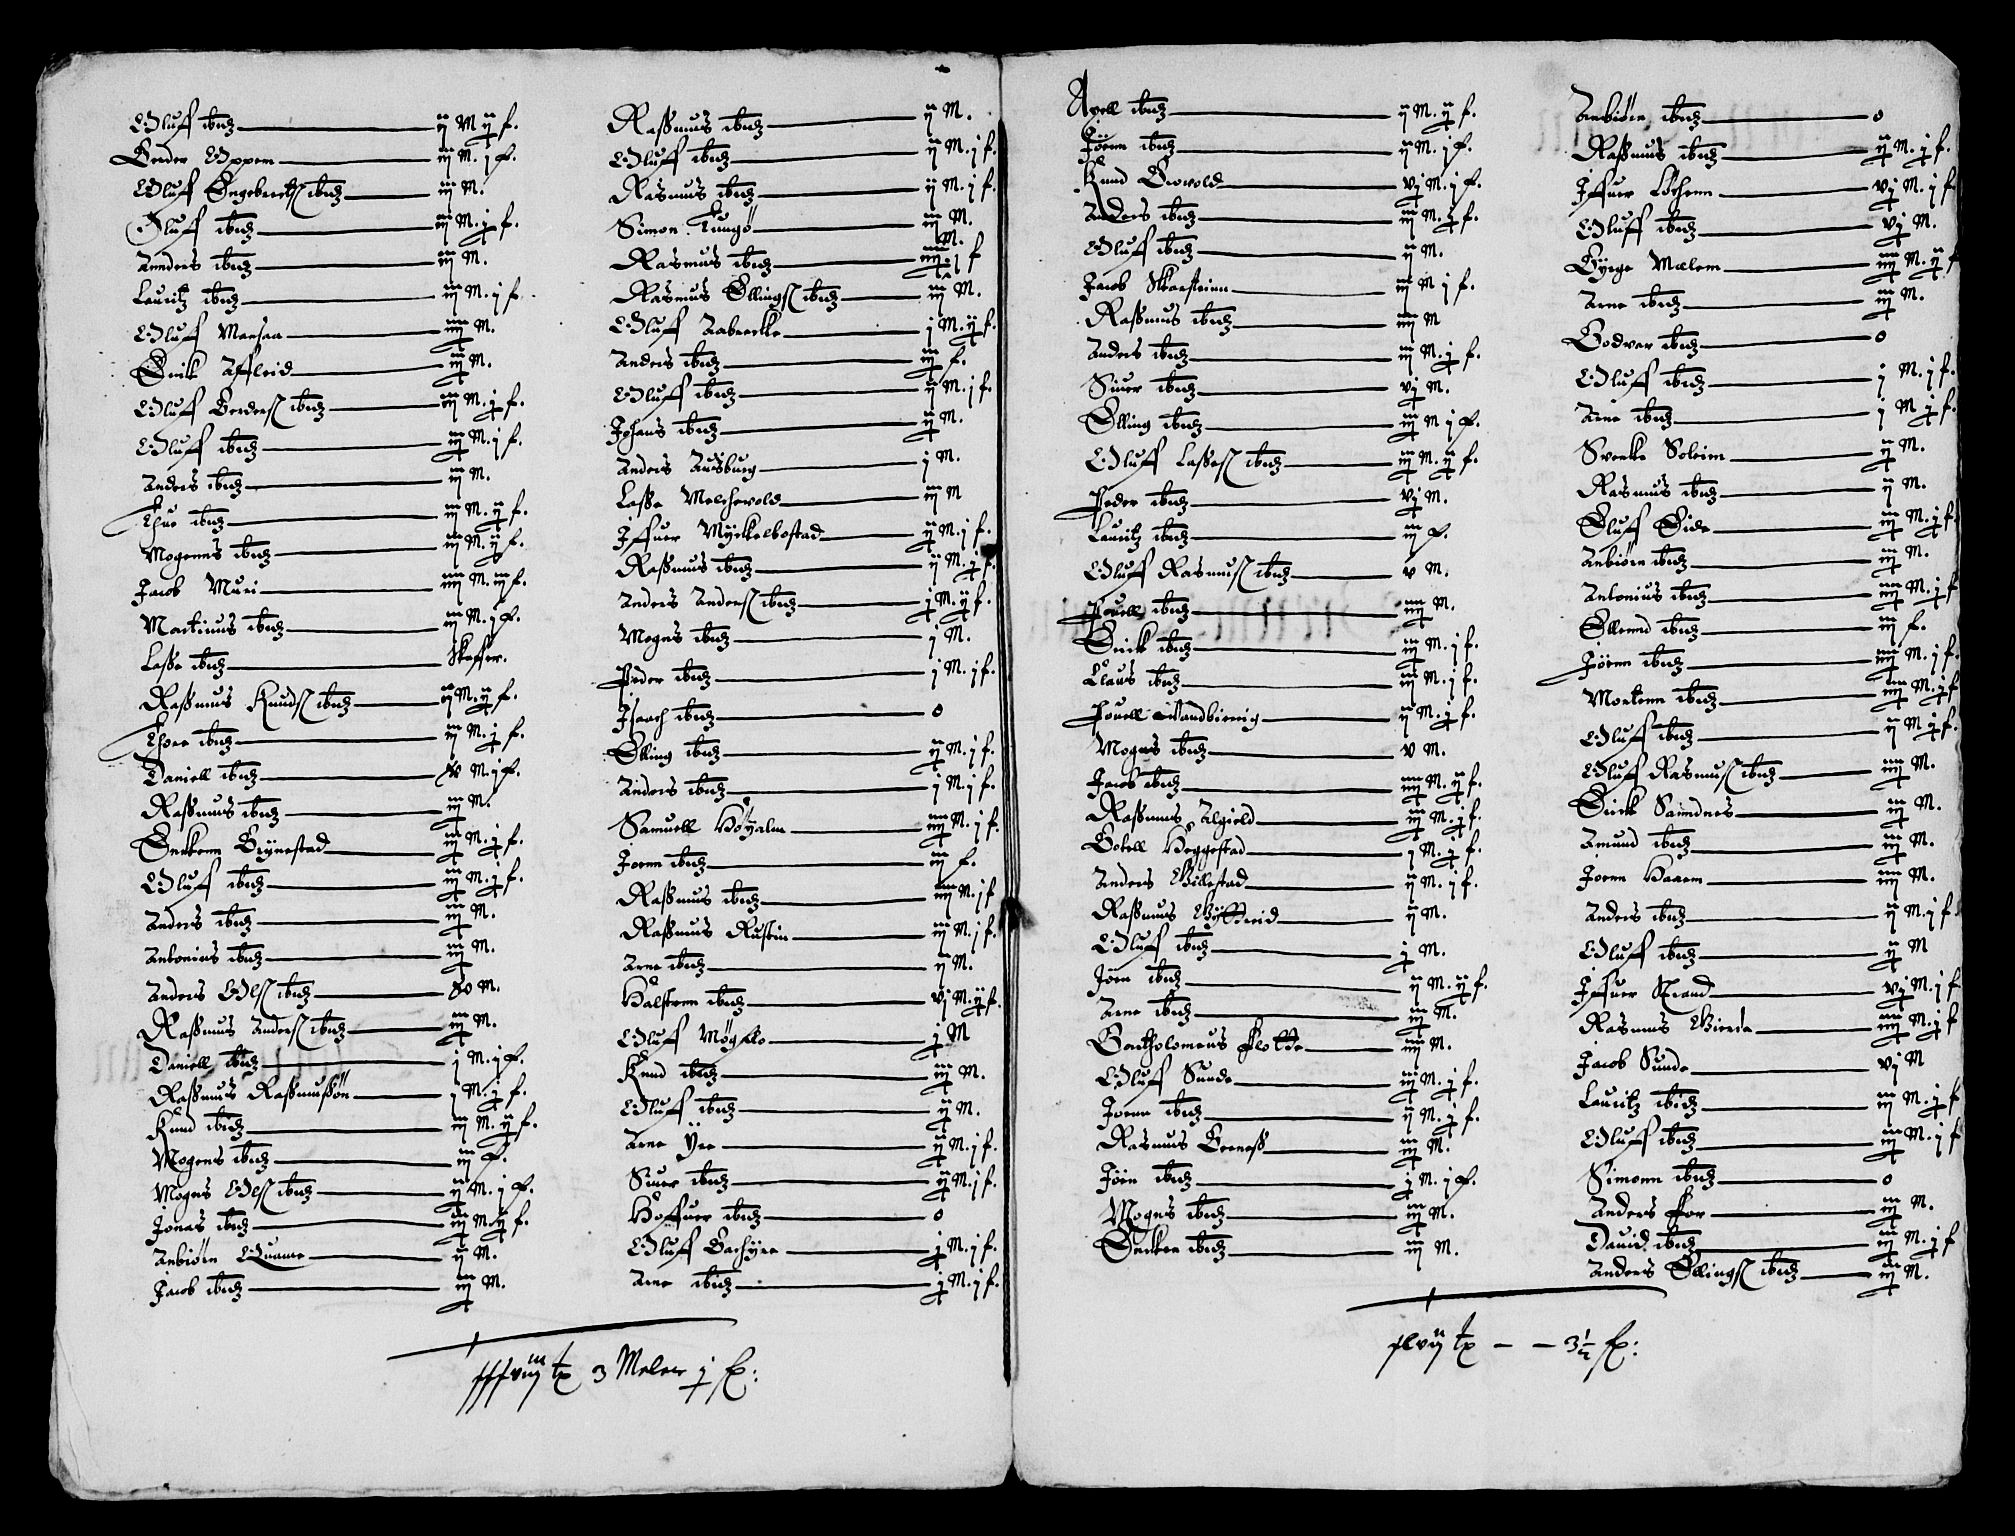 Oluff ibid ij M ij f.
Peder Oppem iij M. j f.
Oluff Engebretß ibid iij M.
Oluff ibid iij M. j f.
Annders ibid iij M.
Lauritz ibid iij M. j f
Oluff Marsaa iiij M.
Erik Affleid iij M.
Oluff Pederß ibid iiij M. j f.
Oluff ibid iij M. j f.
Anders ibid iij M.
Thue ibid iij M. ij f.
Mogenns ibid iij M. ij f.
Jacob Muri iiij M. iij f.
Martinus ibid iij M. j f.
Laße ibid Skaffer.
Raßmus Knudß ibid ij M. ij f.
Thore ibid iij M. j f.
Daniell ibid M. j f.
Raßmus ibid iij M.
Enckenn Brynestad iij M. j f.
Oluff ibid iij M. j f.
Anders ibid iij M.
Antonius ibid iij M.
Anders Olß ibid M.
Raßmus Anderß ibid iij M.
Daniell ibid j M. j f.
Raßmus Raßmußön j M. j f.
Knud ibid iij M. ij f.
Mogens ibid iij f.
Mogns Olß ibid ij M. j f.
Jonas ibid iij M. ij f.
Anbiörn Quame ij M.
Jacob ibid iij M.
Raßmus ibid ij M.
Oluff ibid ij M. j f.
Rasmus ibid ij M. j f
Simon Tungö iij M.
Rasmus ibid iiij M. j f
Rasmus Ellingß ibid iij M.
Oluff Aabrecke j M. ij f.
Anders ibid iij f.
Oluff ibid ij M. j f.
Johans ibid ij M.
Anders Ausburg j M.
Laße Melchevold iij M
Jffuer Myckelbostad ij M. j f.
Raßmus ibid ij M. j f.
Anders Anderß ibid j M. ij f.
Mogns ibid j M.
Peder ibid j M. j f.
Jsaach ibid 0
Elling ibid ij M. j f.
Anders ibid j M. j f.
Samuell Höyalm iiij M. j f.
Joenn ibid iij f.
Raßmus ibid iiij M. j f
Raßmus Rustin iij M. j f.
Arne ibid ij M.
Halstenn ibid vj M. ij f.
Oluff Mögklo j M
Knud ibid iij M.
Oluff ibid ij M.
Arne Yre ij M. j f.
Siuer ibid ij M. j f.
Hoffuer ibid 0
Oluff Bachyre j M. j f.
Arne ibid j M. j f.
tp 3 Meler j f:
Axell ibid ij M. ij f.
Jörnn ibid ij M. j f.
Knud Orvold vj M. j f.
Anders ibid iij M. j f.
Oluff ibid ij M.
Jacob Skarstein iij M j f.
Raßmus ibid iiij M
Anders ibid iij M. j f.
Siuer ibid vj M.
Elling ibid iij M j f.
Oluff Laßeß ibid iij M. ij f.
Peder ibid vj M.
Lauritz ibid iij f.
Oluff Rasmuß ibid v M.
Pouell ibid iiij M.
Erick ibid iij M. j f.
Claus ibid iij M. j f.
Pouell ij M. j f.
Mogns ibid v M.
Jacob ibid iiij M. ij f.
Raßmus Algield iij M. j f.
Botell Heggestad j M. j f.
Anders Gillestad ij M. j f.
Raßmus ij M.
Oluff ibid j M.
Jörn ibid ij M. ij f.
Arne ibid iij M.
Bartholomeus Flotte iiij M.
Oluff Sunde iij M. j f.
Joenn ibid ij M. j f.
Rasmus Gernеß iij M.
Jörn ibid j M. j f.
Mogns ibid iij M.
Encken ibid iij M.
Anbiörn ibid 0
Raßmus ibid ij M. j f.
Jffuer Löchenn vj M. j f.
Oluff ibid vj M.
Byrge Mælem iiij M. ij f
Arne ibid iij M.
Godvar ibid 0
Oluff ibid j M. j f.
Arne ibid j M j f.
Sverke Soleim ij M.
Rasmus ibid ij M.
Oluff Eide iij M. j f
Anbiörn ibid iij M.
Antonius ibid iiij M. j f
Ellend ibid iij f.
Jörnn ibid iiij M. j f.
Mortenn ibid iiij M. j f
Oluff ibid ij M j f.
Oluff Rasmuß ibid iiij M.
Erick Sanndnes iij M.
Amund ibid iij M.
Joenn Haaem iiij M.
Anders ibid ij M. j f
Oluff ibid ij M
Jffuer Strand vj M. j f
Rasmus iiij M. j f
Jacob Sunde vj M
Lauritz ibid iij M. j f
Oluff ibid iij M. j f
Simonn ibid 0
Anders For iij M.
Dauid ibid iij M. j f
Anders Ellingß ibid iij M.
tp - - 3½ f: